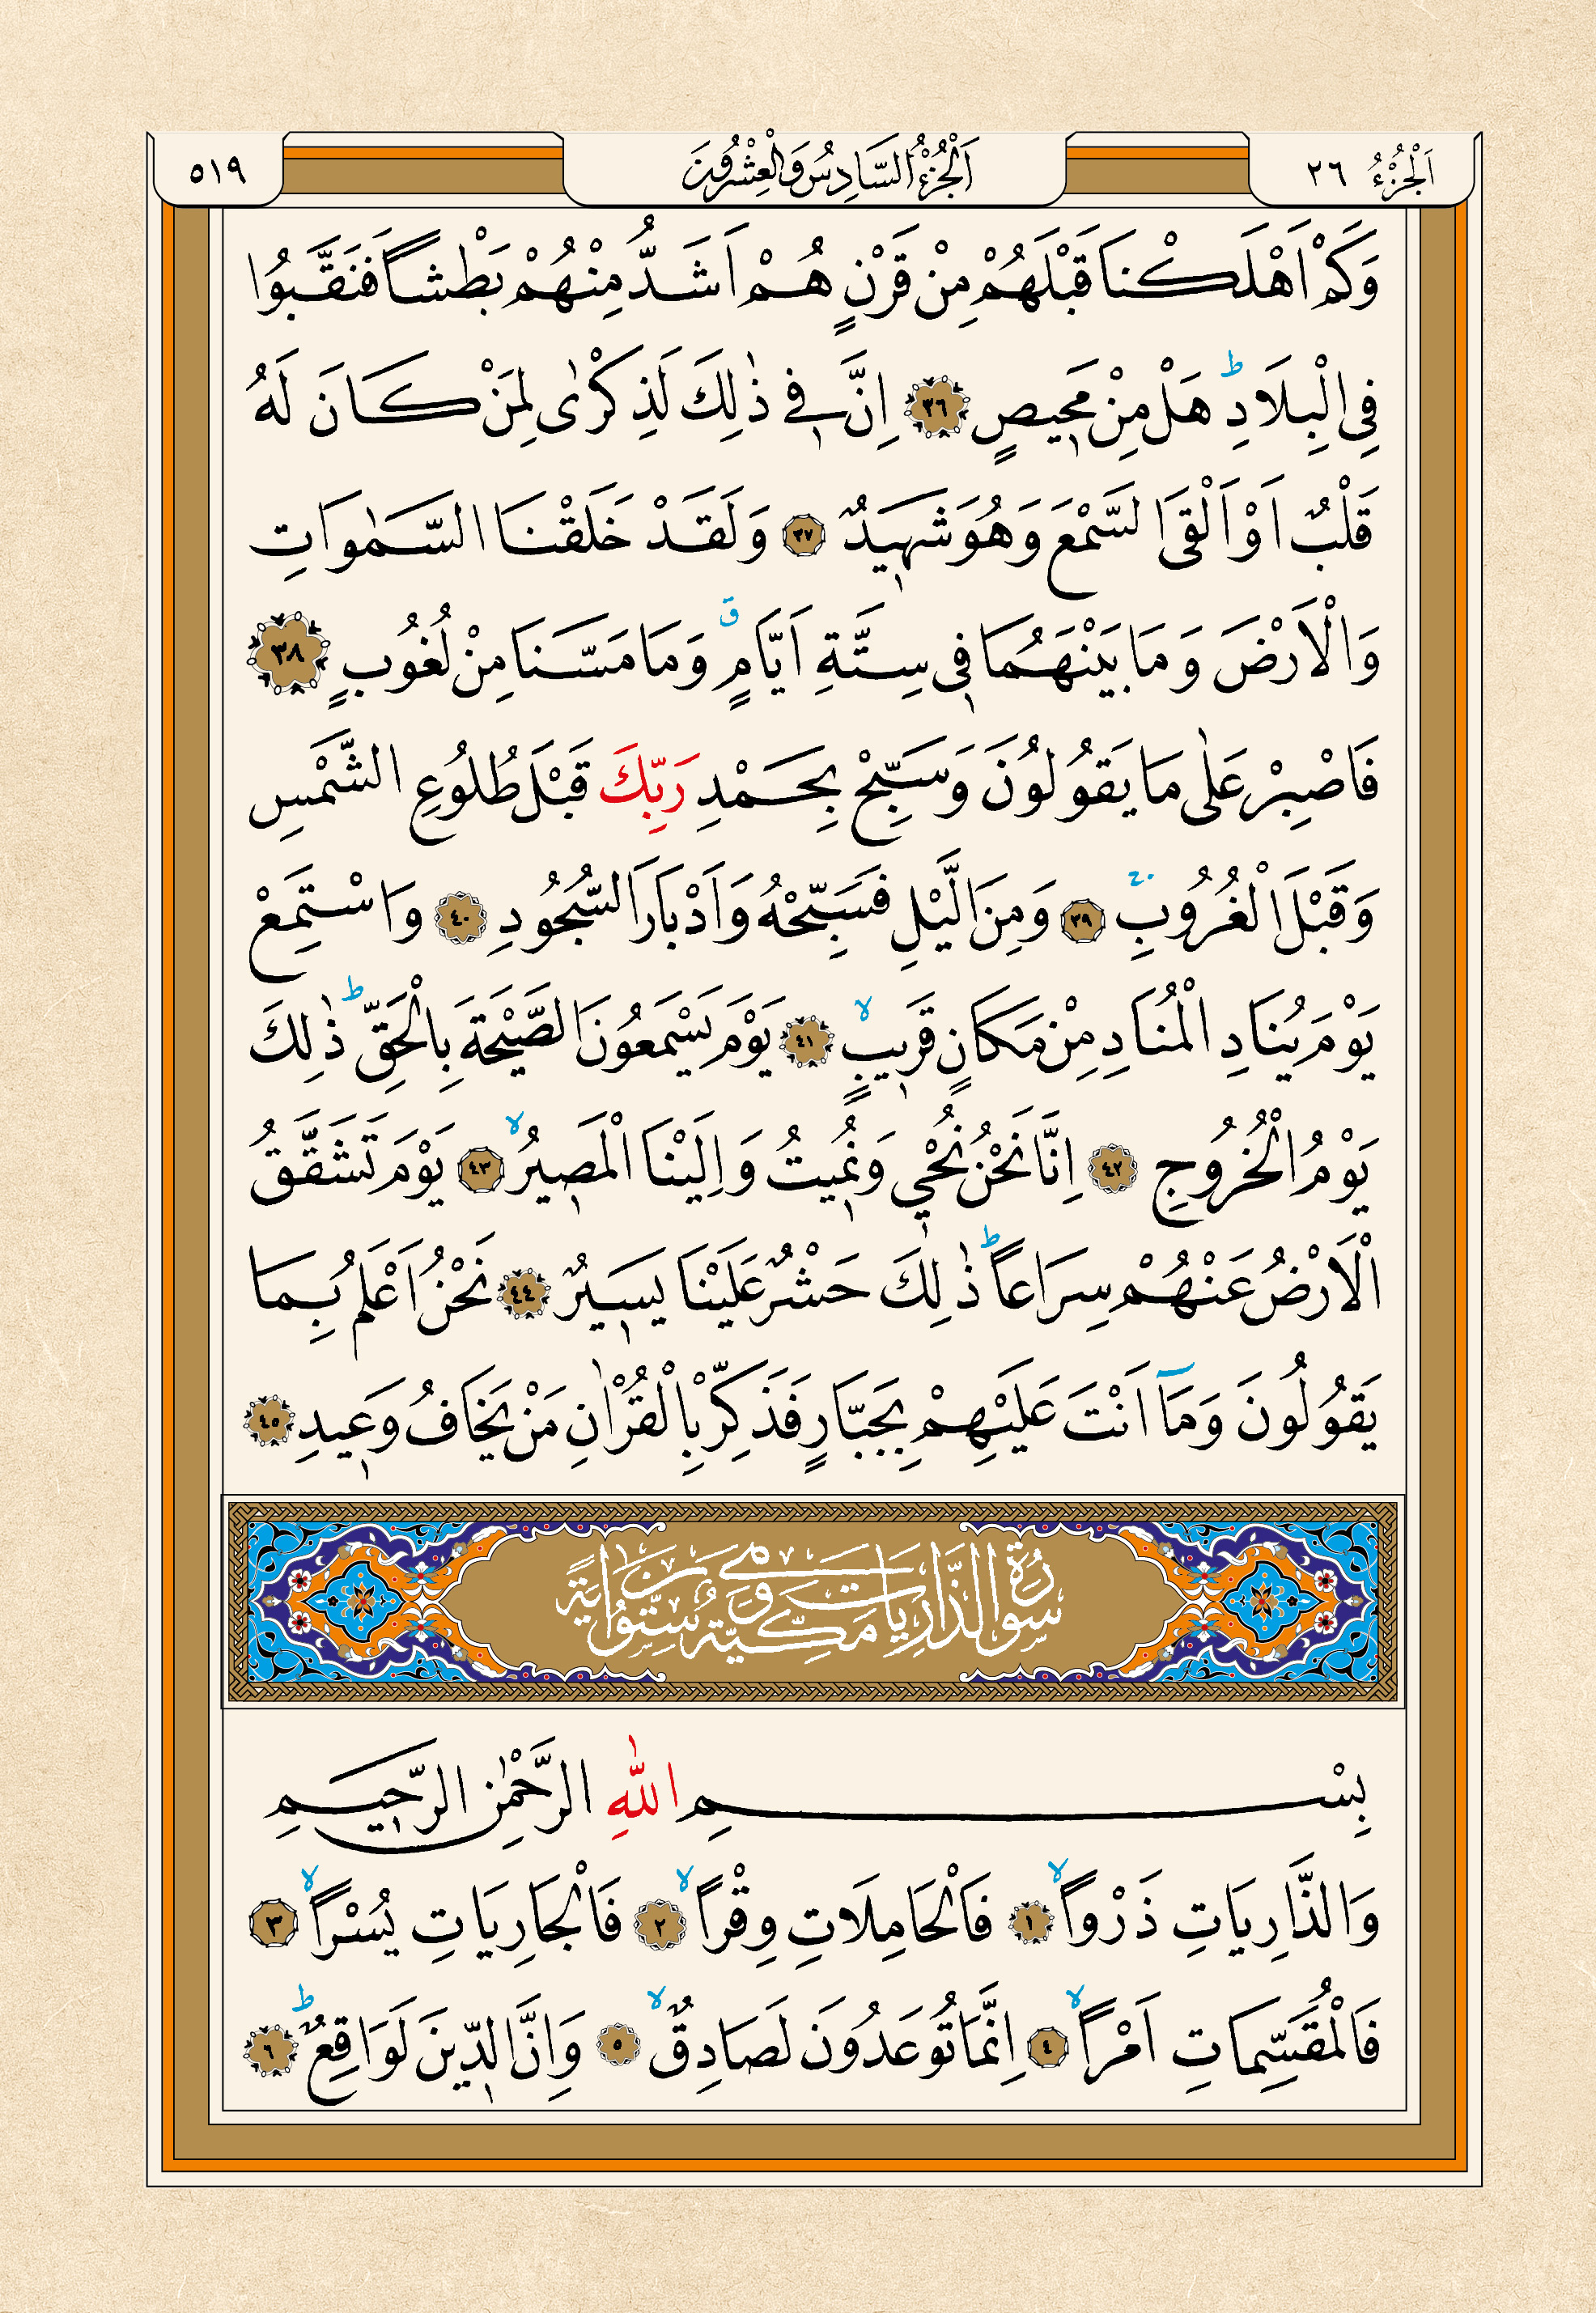 اَلْجُزْءُ ٢٦ اَلْجُزْءُ السَّادِسُ وَالْعِشْرُونَ ٥١٩
وَكَمْ اَهْلَكْنَا قَبْلَهُمْ مِنْ قَرْنٍ هُمْ اَشَدُّ مِنْهُمْ بَطْشاً فَنَقَّبُوا
فِي الْبِلَادِۜ هَلْ مِنْ مَحٖيصٍ ٣٦ اِنَّ فٖي ذٰلِكَ لَذِكْرٰى لِمَنْ كَانَ لَهُ
قَلْبٌ اَوْ اَلْقَى السَّمْعَ وَهُوَ شَهٖيدٌ ٣٧ وَلَقَدْ خَلَقْنَا السَّمٰوَاتِ
وَالْاَرْضَ وَمَا بَيْنَهُمَا فٖي سِتَّةِ اَيَّامٍۗ وَمَا مَسَّنَا مِنْ لُغُوبٍ ٣٨
فَاصْبِرْ عَلٰى مَا يَقُولُونَ وَسَبِّحْ بِحَمْدِ رَبِّكَ قَبْلَ طُلُوعِ الشَّمْسِ
وَقَبْلَ الْغُرُوبِۚ ٣٩ وَمِنَ الَّيْلِ فَسَبِّحْهُ وَاَدْبَارَ السُّجُودِ ٤٠ وَاسْتَمِعْ
يَوْمَ يُنَادِ الْمُنَادِ مِنْ مَكَانٍ قَرٖيبٍۙ ٤١ يَوْمَ يَسْمَعُونَ الصَّيْحَةَ بِالْحَقِّۜ ذٰلِكَ
يَوْمُ الْخُرُوجِ ٤٢ اِنَّا نَحْنُ نُحْيٖ وَنُمٖيتُ وَاِلَيْنَا الْمَصٖيرُۙ ٤٣ يَوْمَ تَشَقَّقُ
الْاَرْضُ عَنْهُمْ سِرَاعاًۜ ذٰلِكَ حَشْرٌ عَلَيْنَا يَسٖيرٌ ٤٤ نَحْنُ اَعْلَمُ بِمَا
يَقُولُونَ وَمَٓا اَنْتَ عَلَيْهِمْ بِجَبَّارٍ فَذَكِّرْ بِالْقُرْاٰنِ مَنْ يَخَافُ وَعٖيدِ ٤٥
سُورَةُ الذَّارِيَاتِ مَكِّيَّةٌ وَهِيَ سِتُّونَ اٰيَةً
بِسْمِ اللّٰهِ الرَّحْمٰنِ الرَّحٖيمِ
وَالذَّارِيَاتِ ذَرْواًۙ ١ فَالْحَامِلَاتِ وِقْراًۙ ٢ فَالْجَارِيَاتِ يُسْراًۙ ٣
فَالْمُقَسِّمَاتِ اَمْراًۙ ٤ اِنَّمَا تُوعَدُونَ لَصَادِقٌۙ ٥ وَاِنَّ الدّٖينَ لَوَاقِعٌۜ ٦